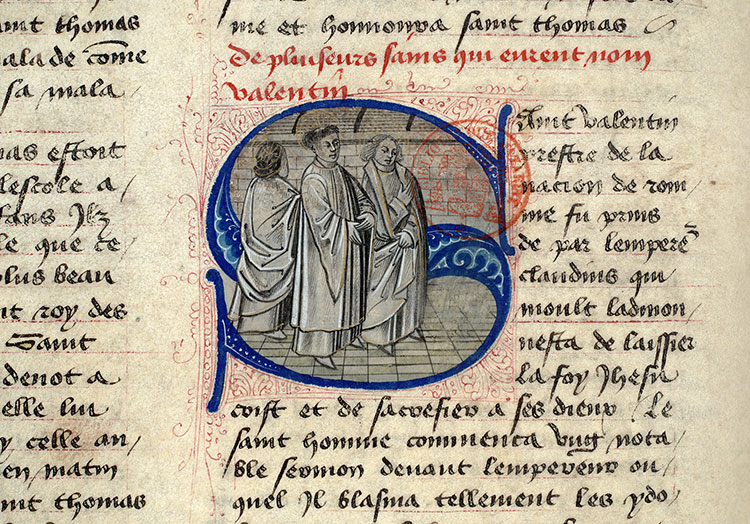 aint thomas
malade cõme
sa mala
as estoit
lescole a
fans Ilz
le que te
plus beau
it roy des
Saint
denot a
elle lui
y celle an
en matin
saint thomas
me et honnoura saint thomas
De pluiseurs sains qui eurent nom
valentin
Saint valentin
prestre de la
nacion de rom
me fu prins
de par lemperẽ
claudius qui
moult ladmon
nesta de laissier
la foy Jhesu
crist et de sacrefier a ses dieux Le
saint homme commenca ung nota
ble sermon devant lempereur ou
quel Il blasma tellement les ydo